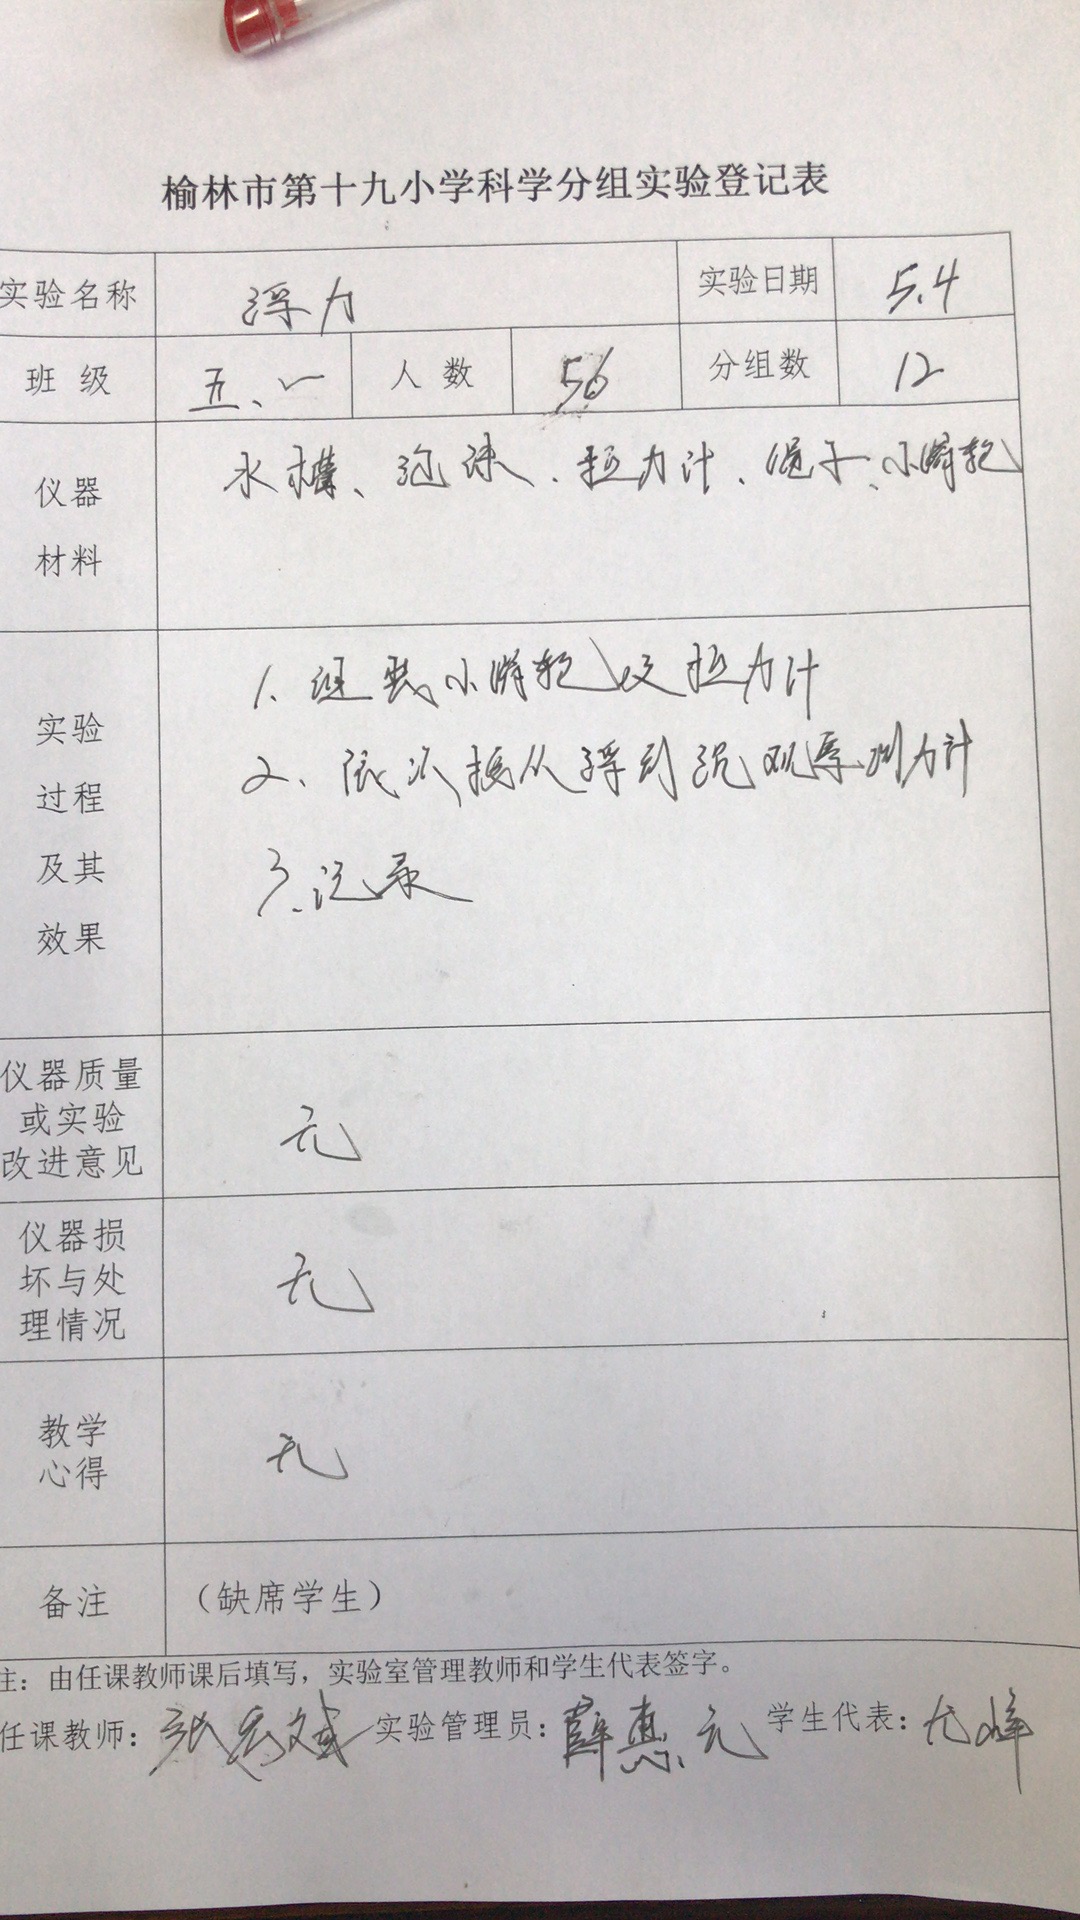 榆林市第十九小学科学分组实验登记表
实验名称 浮力 实验日期 5.4
班级 五、一 人数 56 分组数 12
仪器材料 水槽、泡沫、拉力计、绳子、小滑轮
实验过程及其效果
1. 连 小滑轮及拉力计
2、依次按从浮到沉观察测力计
3.记录
仪器质量或实验改进意见 无
仪器损坏与处理情况 无
教学心得 无
备注 （缺席学生）
注：由任课教师课后填写，实验室管理教师和学生代表签字。
任课教师： 实验管理员：薛惠元 学生代表：尤烽